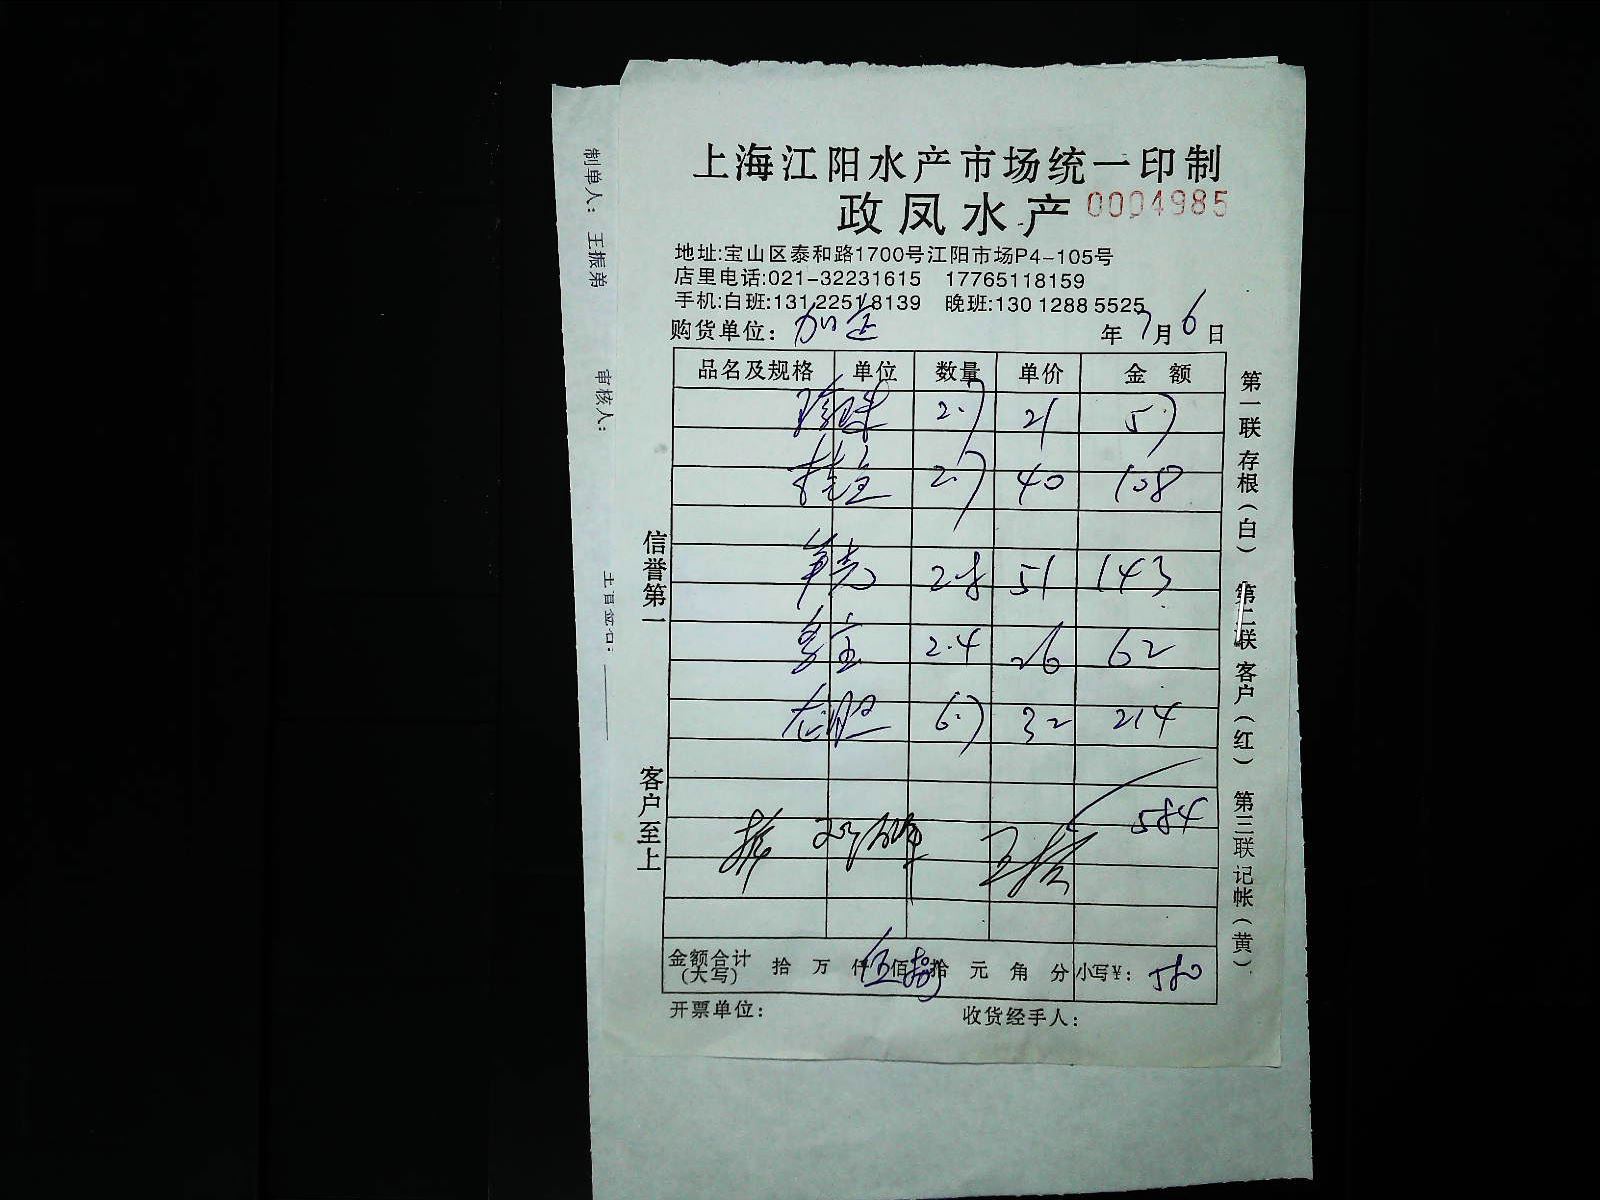 上海江阳水产市场统一印制
政凤水产 0004985
地址:宝山区泰和路1700号江阳市场P4-105号
店里电话:021-32231615 17765118159
手机:白班:131 2251 8139 晚班:130 1288 5525
购货单位: 年 7 月 6 日
品名及规格 单位 数量 单价 金额
2.7 21 57
2.7 40 108
2.8 51 143
2.4 26 62
龙胆 6.7 32 214
584
金额合计(大写) 拾 万 仟 伍 佰 捌 拾 元 角 分 小写¥: 580
开票单位: 收货经手人:
信誉第一
客户至上
第一联 存根(白) 第二联 客户(红) 第三联 记帐(黄)
制单人: 王振弟
审核人: